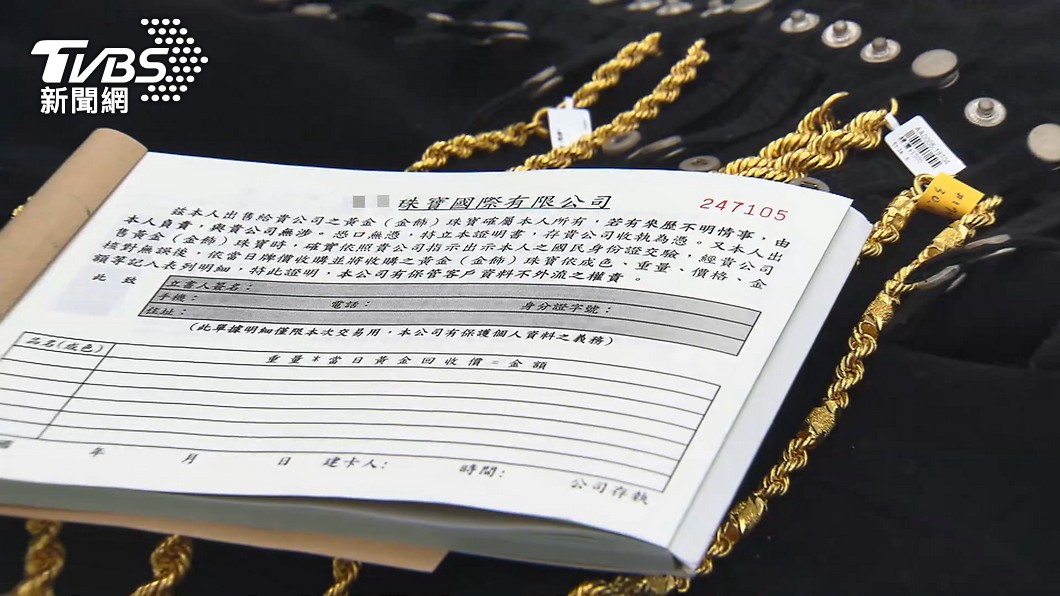 TVBS
新聞網
珠寶國際有限公司
247105
茲本人出售給貴公司之黃金(金飾)珠寶確屬本人所有，若有來歷不明情事，由
本人負責，與貴公司無涉。恐口無憑，特立本證明書，存貴公司收執為憑。又本人出
售黃金(金飾)珠寶時，確實依照貴公司指示出示本人之國民身份證交驗，經貴公司
核對無誤後，依當日牌價收購並將收購之黃金(金飾)珠寶依成色、重量、價格、金
額等記入表列明細，特此證明，本公司有保管客戶資料不外流之權責。
此致
立書人簽名：
手機：
電話：
身分證字號：
住址：
(此單據明細僅限本次交易用，本公司有保護個人資料之義務)
品名(成色)
重量*當日黃金回收價=金額
國 年 月 日 建卡人: 時間:
公司存執